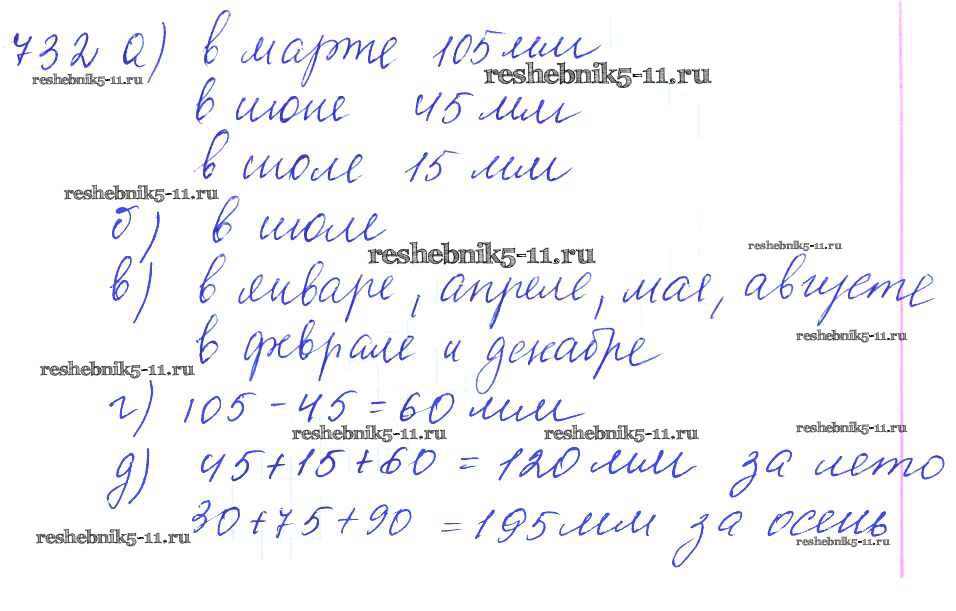 732 а) в марте 105 мм
reshebnik5-11.ru
reshebnik5-11.ru
в июне 45 мм
в июле 15 мм
reshebnik5-11.ru
б) в июле
reshebnik5-11.ru
reshebnik5-11.ru
в) в январе, апреле, мае, августе
reshebnik5-11.ru
в феврале и декабре
reshebnik5-11.ru
г) 105 - 45 = 60 мм
reshebnik5-11.ru
reshebnik5-11.ru
reshebnik5-11.ru
д) 45 + 15 + 60 = 120 мм за лето
30 + 75 + 90 = 195 мм за осень
reshebnik5-11.ru
reshebnik5-11.ru